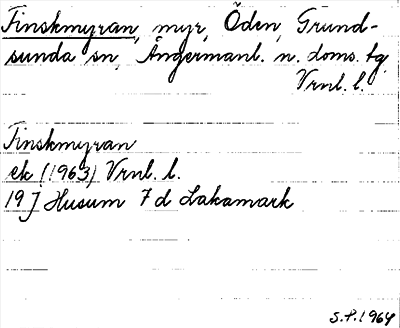 Finskmyran, myr, Öden, Grund-
sunda sn, Ångermanl. n. doms. tg,
Vrnl. l.
Finskmyran
ek (1963) Vrnl. l.
19 J Husum 7 d Lakamark
S.P. 1964